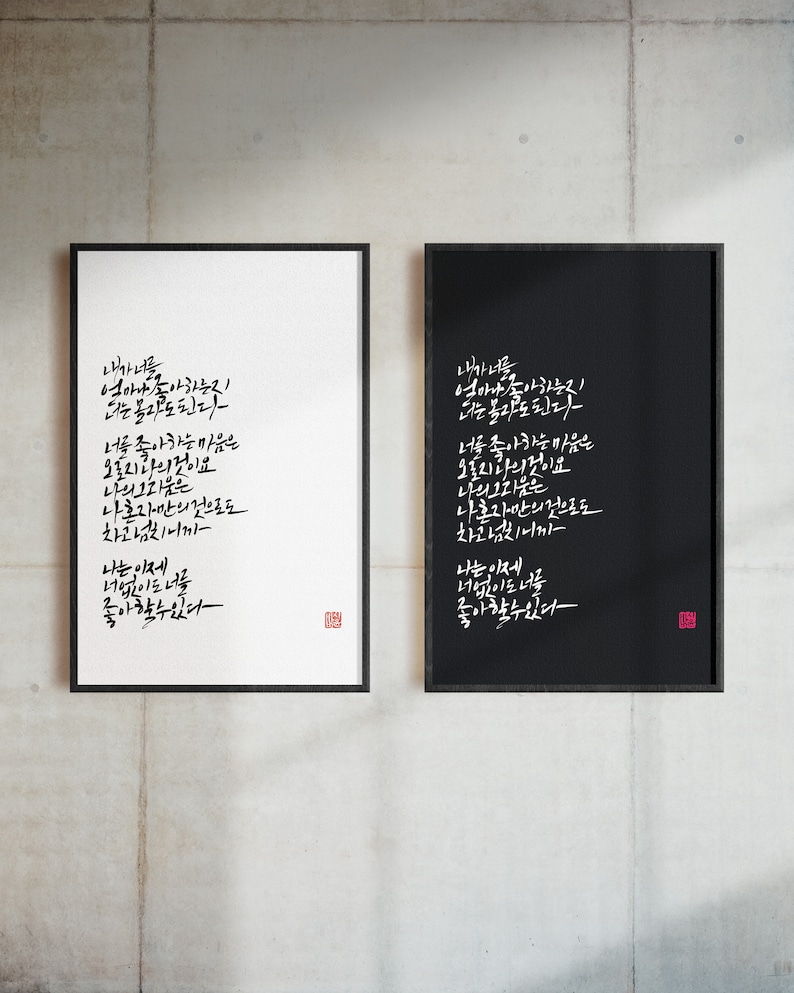 내가 너를
얼마나 좋아하는지
너는 몰라도 된다
너를 좋아하는 마음은
오로지 나의 것이요
나의 그리움은
나 혼자만의 것으로도
차고 넘치니까
나는 이제
너 없이도 너를
좋아할 수 있다
내가 너를
얼마나 좋아하는지
너는 몰라도 된다
너를 좋아하는 마음은
오로지 나의 것이요
나의 그리움은
나 혼자만의 것으로도
차고 넘치니까
나는 이제
너 없이도 너를
좋아할 수 있다